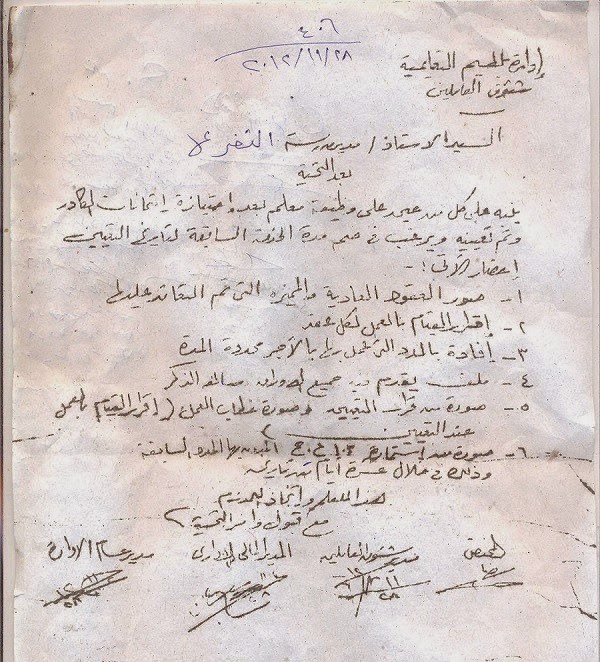 ٤٠٦
٢٠١٢/١١/٢٨
إدارة التعليمية
شئون العاملين
السيد الاستاذ / مدير مدرسة
بعد التحية
ينبه على كل من على وظيفة معلم بعد اجتيازة إمتحانات الكادر
وتم تعيينه ويرغب فى ضم مدة الخدمة السابقة لتاريخ التعيين
إحضار الآتى :-
١- صور العقود العادية والمميزه التى تم التعاقد عليها
٢- إقرار القيام بالعمل لكل عقد
٣- إفادة بالمدد التى عمل بها بالأجر محددة المدة
٤- ملف يقدم به جميع الاوراق سالفة الذكر
٥- صورة من قرار التعيين وصورة خطاب العمل ( إقرار القيام بالعمل
عند التعيين )
٦- صورة من استمارة ١٠٣ ع.ح المدد السابقة
وذلك خلال عشرة أيام من تاريخه
هذا للعلم واتخاذ اللازم
مع قبول وافر التحية
المختص
مدير شئون العاملين
المدير المالى والادارى
مدير عام الادارة